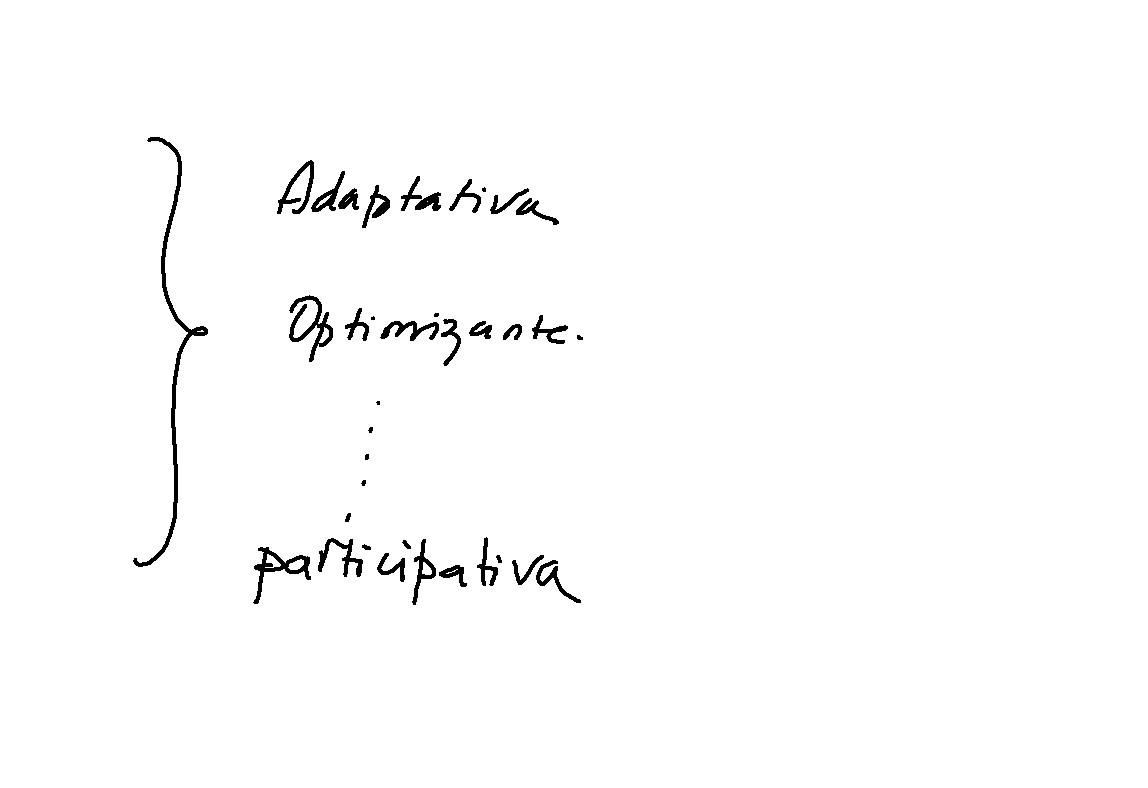 Adaptativa
Optimizante.
participativa